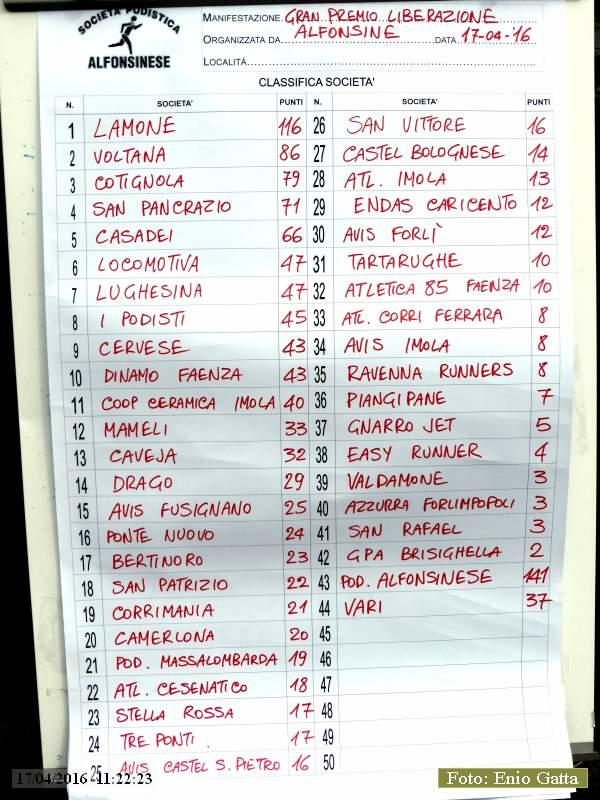 SOCIETA' PODISTICA
ALFONSINESE
MANIFESTAZIONE GRAN PREMIO LIBERAZIONE
ORGANIZZATA DA ALFONSINE DATA 17-04-16
LOCALITÀ
CLASSIFICA SOCIETA'
N. SOCIETA' PUNTI N. SOCIETA' PUNTI
1 LAMONE 116 26 SAN VITTORE 16
2 VOLTANA 86 27 CASTEL BOLOGNESE 14
3 COTIGNOLA 79 28 ATL. IMOLA 13
4 SAN PANCRAZIO 71 29 ENDAS CARICENTO 12
5 CASADEI 66 30 AVIS FORLÌ 12
6 LOCOMOTIVA 47 31 TARTARUGHE 10
7 LUGHESINA 47 32 ATLETICA 85 FAENZA 10
8 I PODISTI 45 33 ATL. CORRI FERRARA 8
9 CERVESE 43 34 AVIS IMOLA 8
10 DINAMO FAENZA 43 35 RAVENNA RUNNERS 8
11 COOP CERAMICA IMOLA 40 36 PIANGIPANE 7
12 MAMELI 33 37 GNARRO JET 5
13 CAVEJA 32 38 EASY RUNNER 4
14 DRAGO 29 39 VALDAMONE 3
15 AVIS FUSIGNANO 25 40 AZZURRA FORLIMPOPOLI 3
16 PONTE NUOVO 24 41 SAN RAFAEL 3
17 BERTINORO 23 42 GPA BRISIGHELLA 2
18 SAN PATRIZIO 22 43 POD. ALFONSINESE 141
19 CORRIMANIA 21 44 VARI 37
20 CAMERLONA 20 45
21 POD. MASSALOMBARDA 19 46
22 ATL. CESENATICO 18 47
23 STELLA ROSSA 17 48
24 TRE PONTI. 17 49
25 AVIS CASTEL S. PIETRO 16 50
17/04/2016 11:22:23
Foto: Enio Gatta